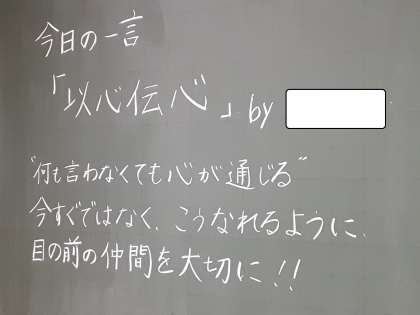 今日の一言
「以心伝心」by
"何も言わなくても心が通じる"
今すぐではなく、こうなれるように、
目の前の仲間を大切に!!